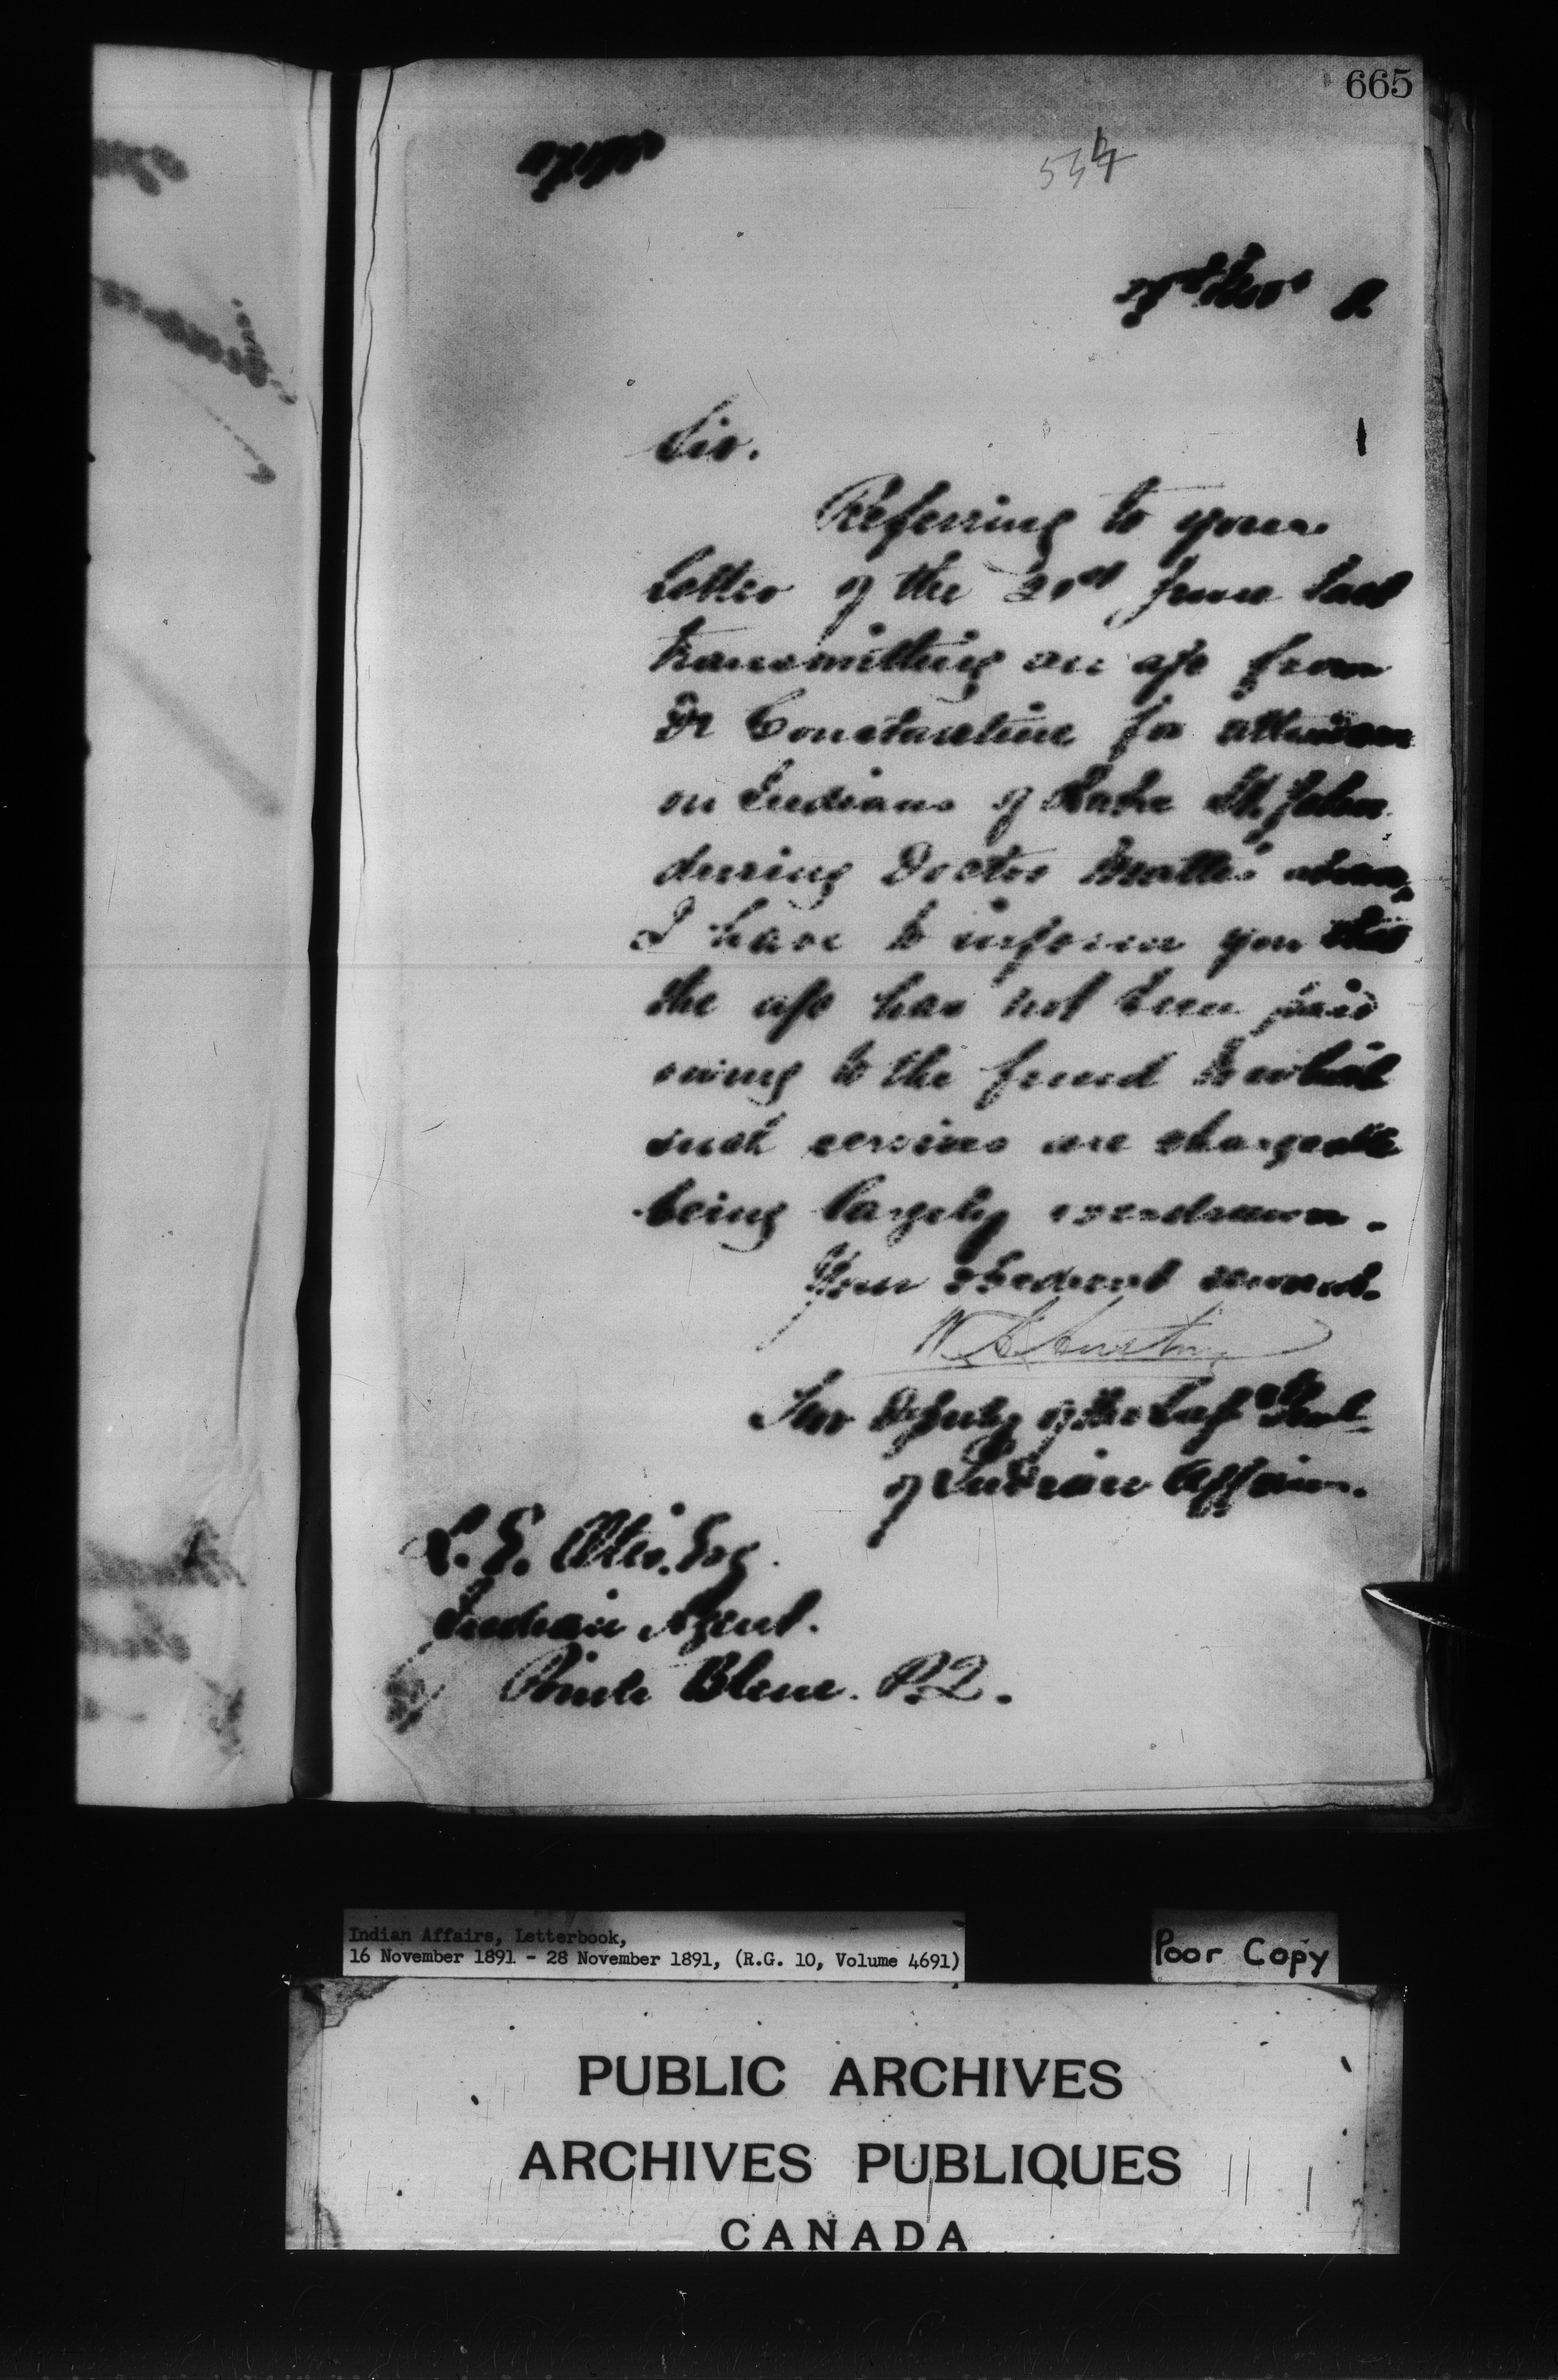 665
534
Sir.
Referring to your
letter of the June last
transmitting an a/c from
Dr Constantine for
on Indians of Lake St. John
during Doctor Matte's
I have to inform you that
the a/c has not been paid
owing to the fund to which
such services are chargeable
being largely overdrawn.
Your obedient servant.
for Deputy of the Supt Genl
of Indian Affairs.
L. E. Otis. Esq.
Indian Agent.
Pointe Bleue. P.Q.
Indian Affairs, Letterbook,
16 November 1891 - 28 November 1891, (R.G. 10, Volume 4691)
Poor Copy
PUBLIC ARCHIVES
ARCHIVES PUBLIQUES
CANADA